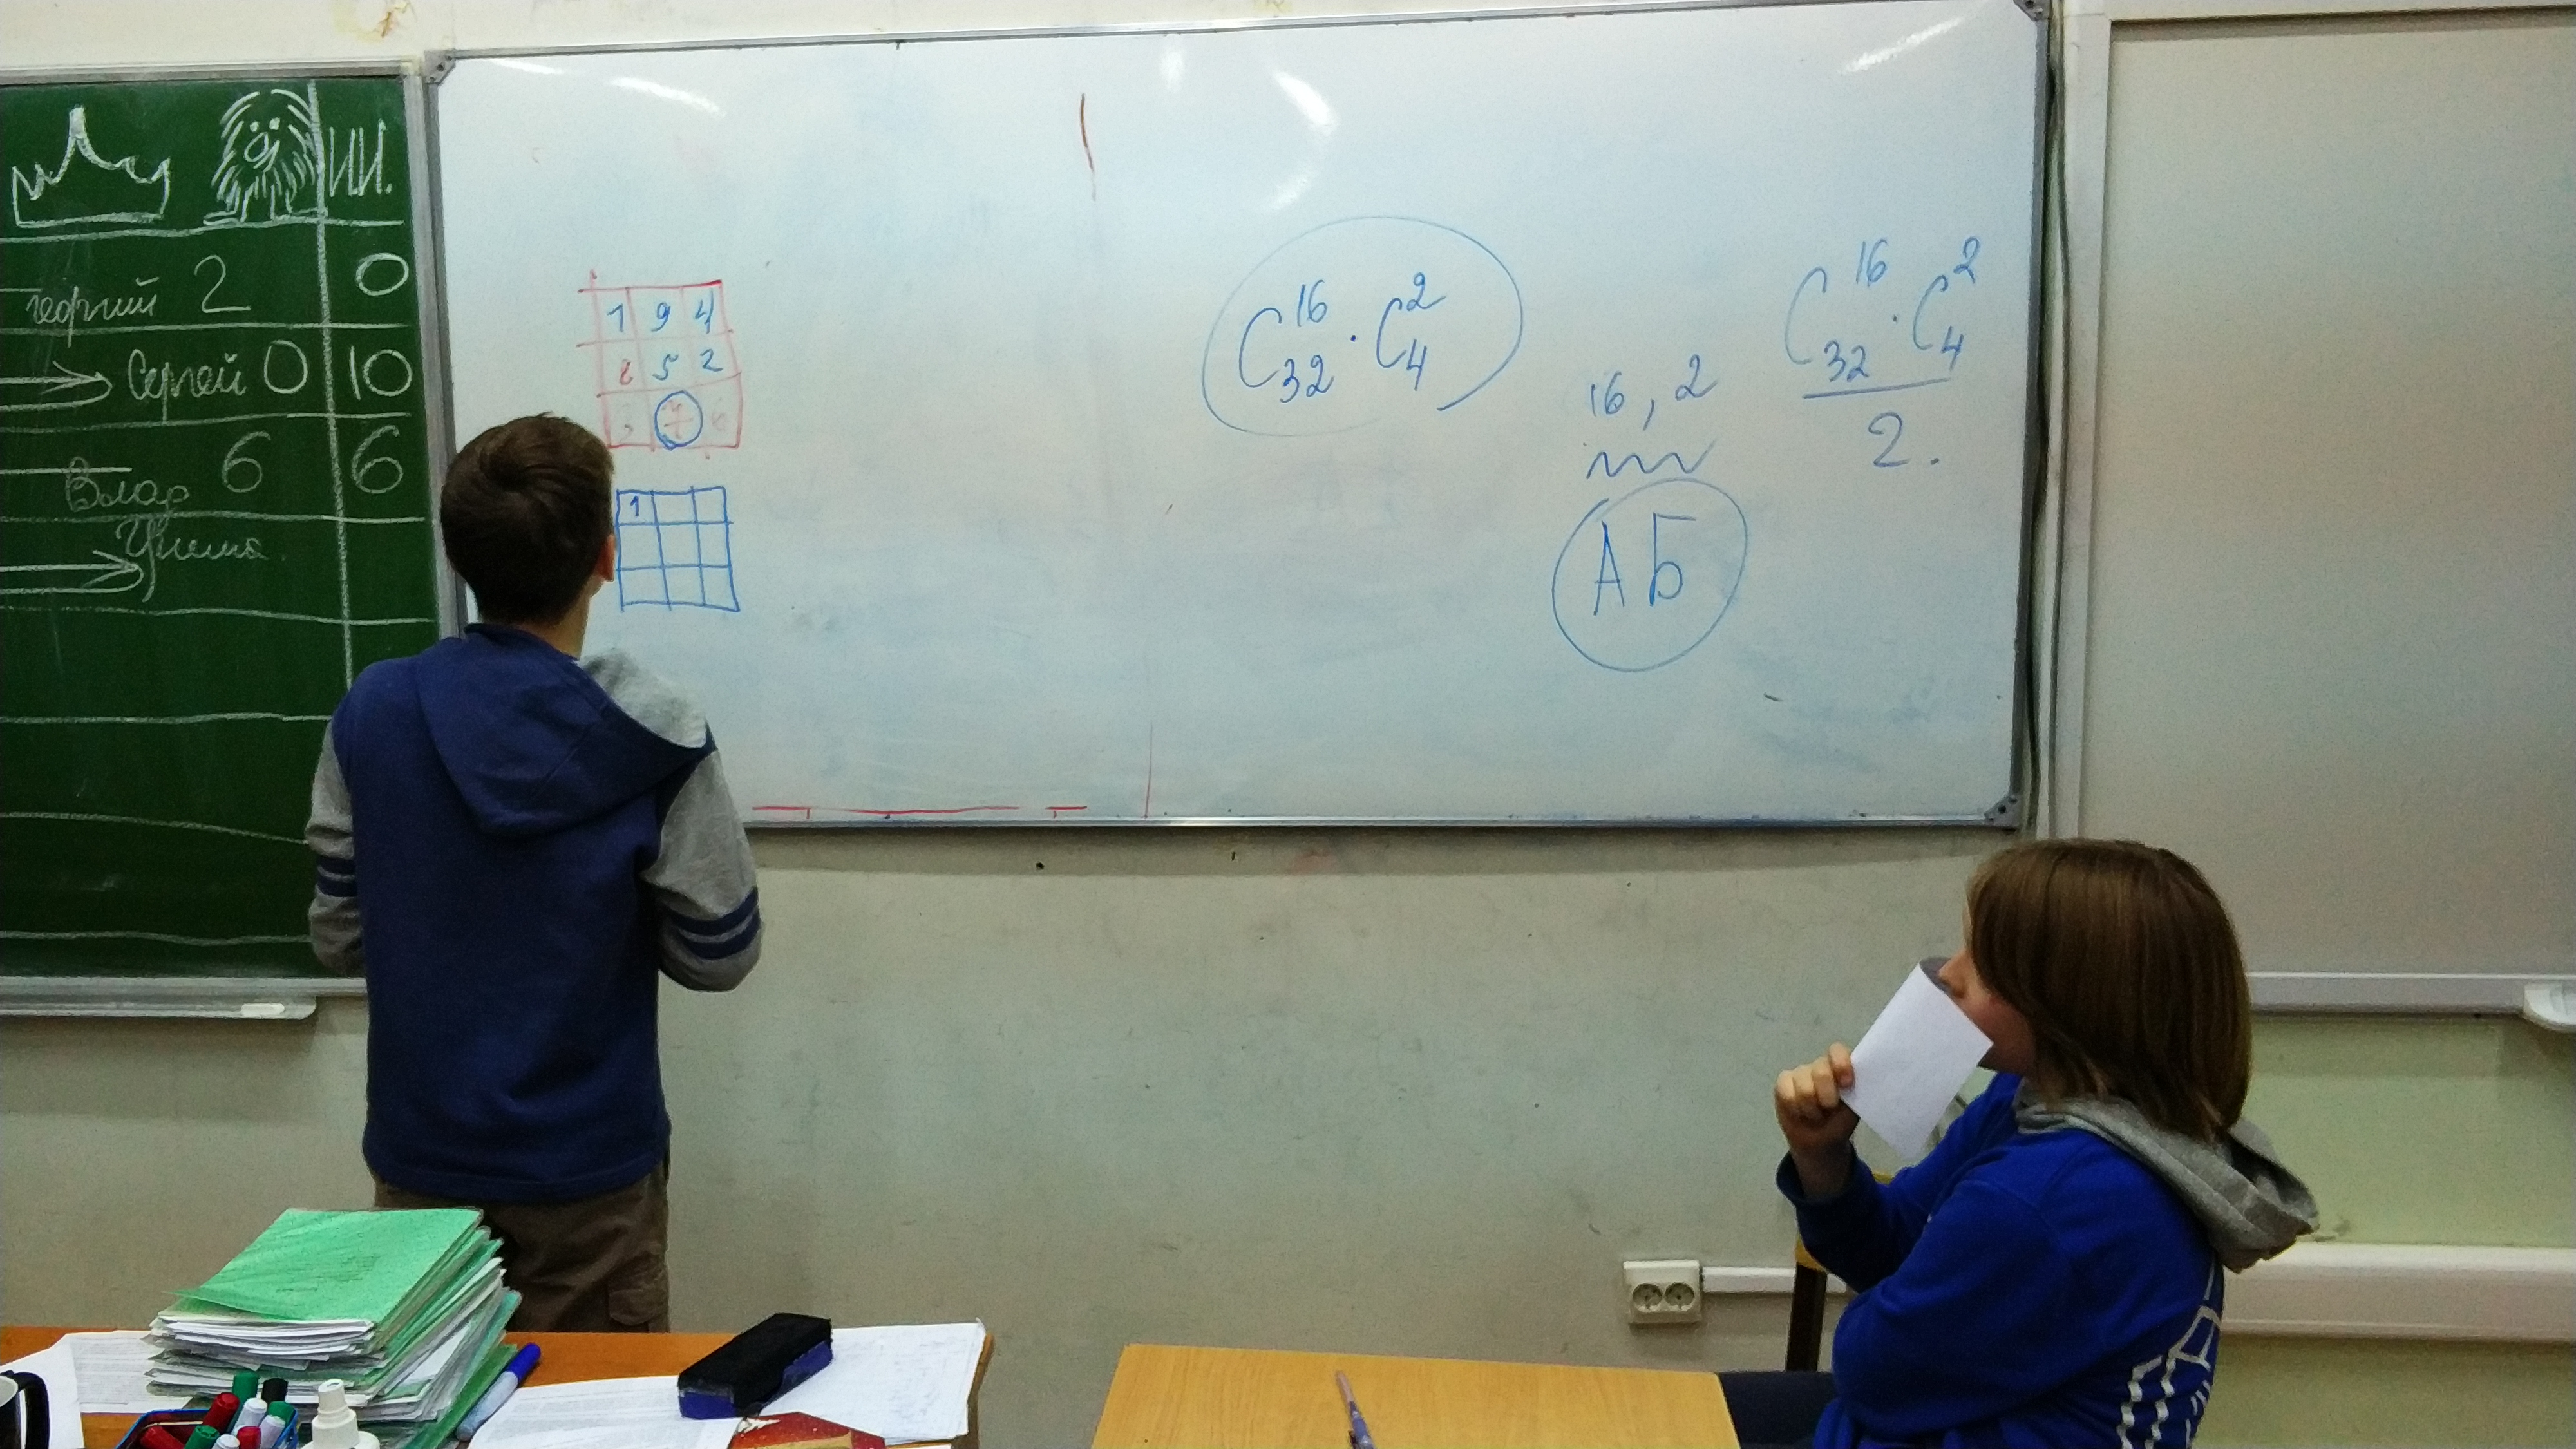 ИИ.
Георгий 2 0
Сергей 0 10
Влад 6 6
Чима.
1 9 4
8 5 2
3 7 6
1
C₃₂¹⁶ · C₄²
16, 2
АБ
C₃₂¹⁶ · C₄²
2.